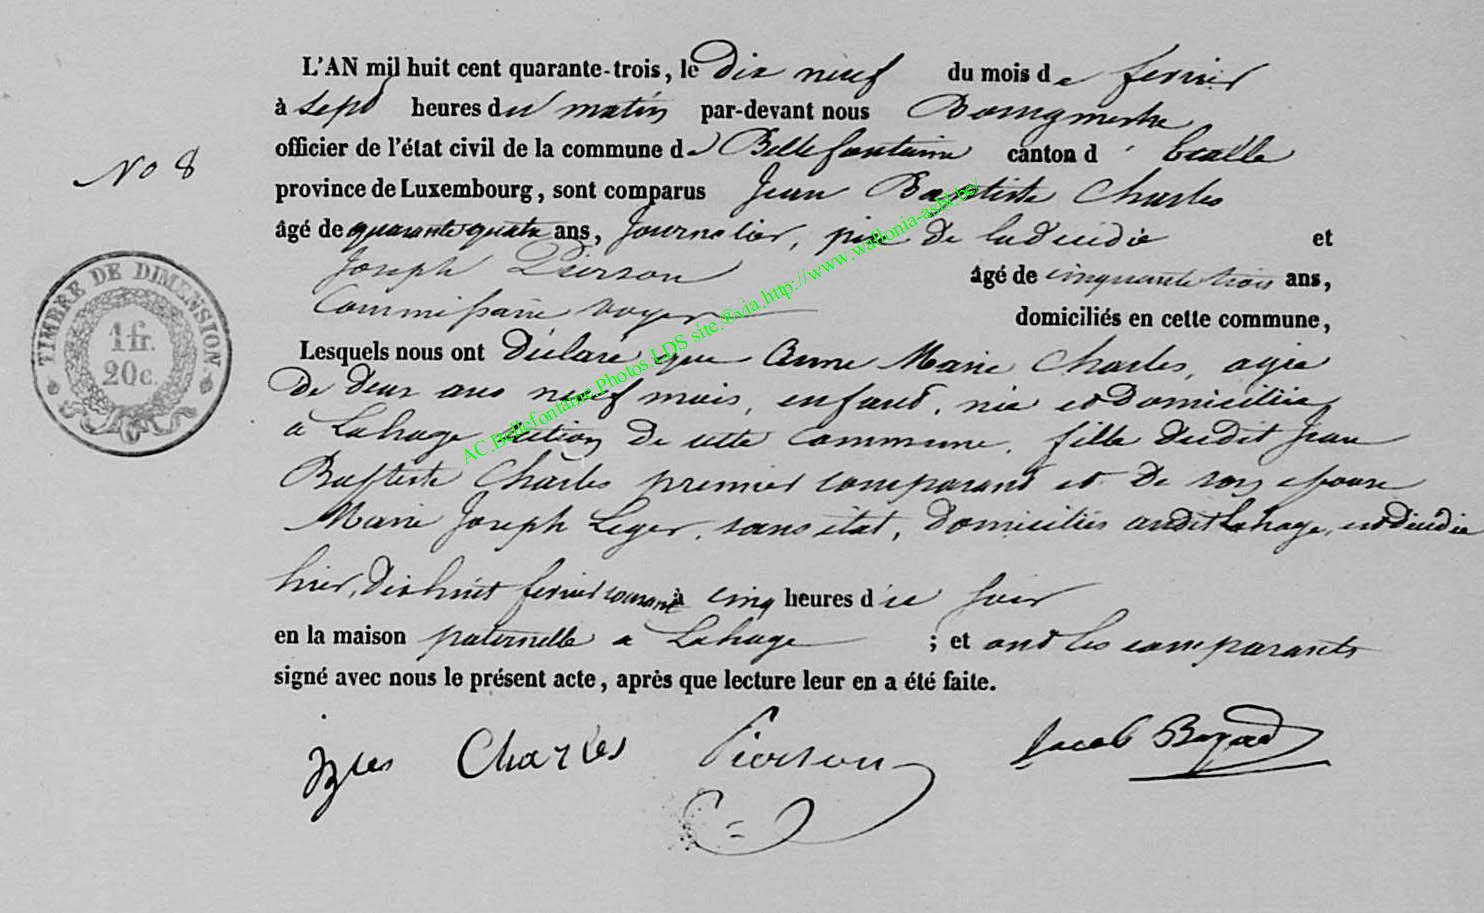 L'AN mil huit cent quarante-trois, le dix neuf du mois de fevrier
à sept heures du matin par-devant nous Bourgmestre
officier de l'état civil de la commune de Bellefontaine canton d'
province de Luxembourg, sont comparus Jean Baptiste Charles
No 8
âgé de quarante quatre ans, Journalier, père de la décédée et
Joseph Pierson âgé de cinquante trois ans,
Commissaire voyer domiciliés en cette commune,
Lesquels nous ont déclaré que Anne Marie Charles, agée
de deux ans neuf mois, enfant, née et domiciliée
a Lahage section de cette commune, fille dudit Jean
Baptiste Charles premier comparant et de son epouse
Marie Joseph Leger, sans état, domiciliés audit Lahage, est décédée
hier, dix huit fevrier courant à cinq heures du soir
en la maison paternelle a Lahage ; et ont les comparants
signé avec nous le présent acte, après que lecture leur en a été faite.
Charles Pierson Jacob
TIMBRE DE DIMENSION
1 fr.
20c.
AC.Bellefontaine.Photos.LDS site ®via.http://www.wallonia-asbl.be/